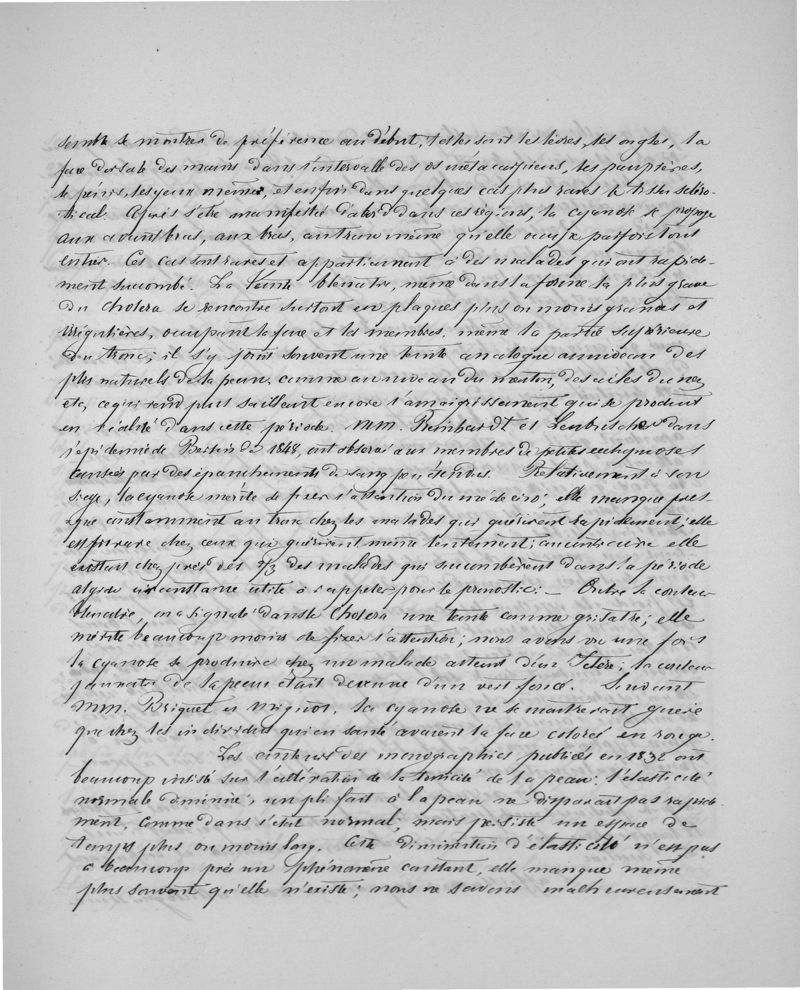 semble se montrer de préférence au début, telles sont les lèvres, les ongles, la
face dorsale des mains dans l'intervalle des os métacarpiens, les paupières,
le pénis, les yeux même, et enfin dans quelques cas plus rares le tissu sclero-
tical. Après s'être manifestée d'abord dans ces régions, la cyanose se propage
aux avant bras, aux bras, au tronc même qu'elle occupe parfois tout
entier. Ces cas sont rares et appartiennent à des malades qui ont rapide-
ment succombé. La teinte bleuatre, même dans la forme la plus grave
du cholera se rencontre surtout en plaques plus ou moins grandes et
irrégulières, occupant la face et les membres, même la partie supérieure
du tronc; il s'y joint souvent une teinte analogue au niveau des
plis naturels de la peau, comme au niveau du menton, des ailes du nez
etc, ce qui rend plus saillant encore l'amaigrissement qui se produit
en réalité dans cette période. MM. Reinhardt et Leubuscher dans
l'épidémie de Berlin de 1848, ont observé aux membres de petites ecchymoses
causées par des épanchements de sang Relativement à son
siège, la cyanose mérite de fixer l'attention du médecin; elle manque pres
que constamment au tronc chez les malades qui guérirent rapidement; elle
est fort rare chez ceux qui guérirent même lentement; au contraire elle
existait chez près des 2/3 des malades qui succombèrent dans la période
algide circonstance utile à rappeler pour le pronostic. — Outre la couleur
bleuatre, on a signalé dans le Cholera une teinte comme grisatre; elle
mérite beaucoup moins de fixer l'attention; nous avons vu une fois
la cyanose se produire chez un malade atteint d'un Ictère; la couleur
jaunatre de la peau était devenue d'un vert foncé. Suivant
MM. Briquet et Mignot, la cyanose ne se montrerait guère
que chez les individus qui en santé avaient la face colorée en rouge.
Les auteurs des monographies publiées en 1832 ont
beaucoup insisté sur l'altération de la tonicité de la peau: l'élasticité
normale diminue, un pli fait à la peau ne disparait pas rapide-
ment, comme dans l'état normal, mais persiste un espace de
temps plus ou moins long. Cette diminution d'élasticité n'est pas
à beaucoup près un phénomène constant, elle manque même
plus souvent qu'elle n'existe; nous ne savons malheureusement